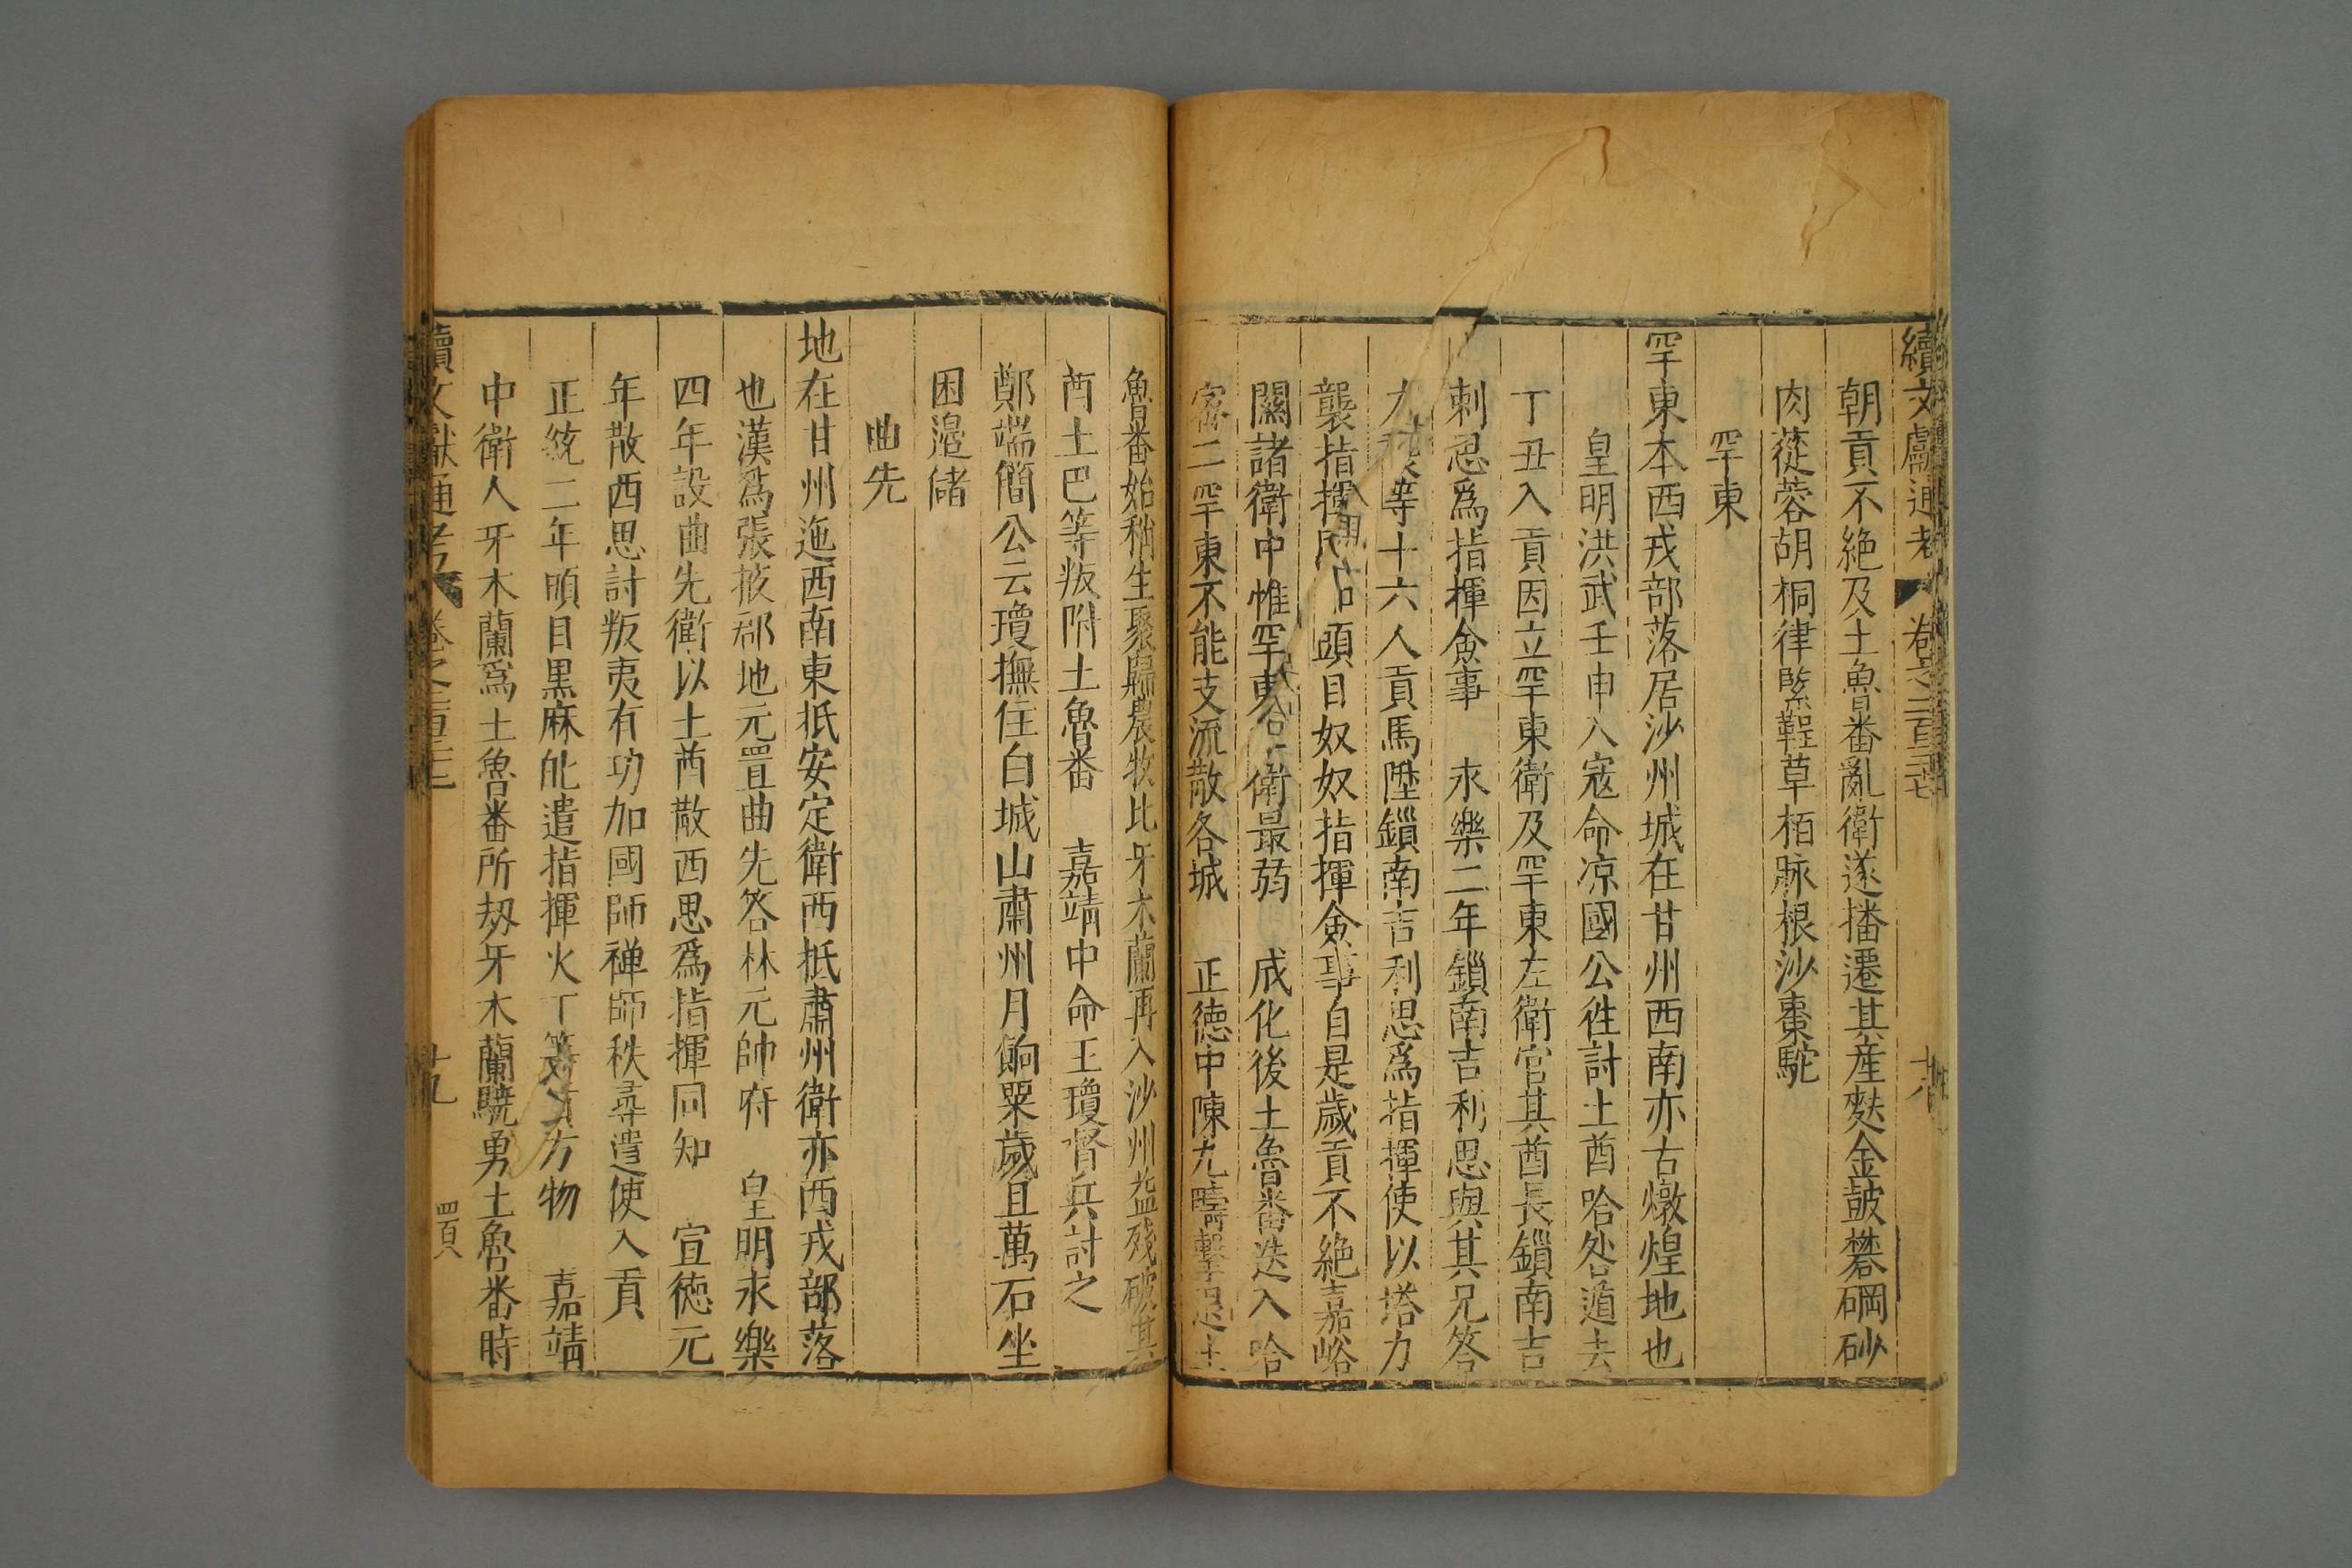 續文獻通考 卷之二百三十七 十八
朝貢不絶及土魯番亂衛遂播遷其産麩金鼓礬碙砂
肉蓯蓉胡桐律緊鞓草栢脉根沙棗駝
罕東
罕東本西戎部落居沙州城在甘州西南亦古燉煌地也
皇明洪武壬申入寇命凉國公徃討土酋哈昝遁去
丁丑入貢因立罕東衛及罕東左衛官其酋長鎖南吉
刺忍爲指揮僉事 永樂二年鎖南吉利思與其兄答
力 等十六人貢馬陞鎖南吉利思爲指揮使以塔力
襲指揮 頭目奴奴指揮僉事自是歲貢不絶嘉峪
關諸衛中惟罕東 衛最弱 成化後土魯番迭入哈
密二罕東不能支流散各城 正德中陳九疇繫 土
魯番始稍生聚歸農牧比牙木蘭再入沙州益殘破其
酋土巴等叛附土魯番 嘉靖中命王瓊督兵討之
鄭端簡公云瓊撫住白城山肅州月餉粟歲且萬石坐
困邉儲
曲先
地在甘州迤西南東抵安定衛西抵肅州衛亦西戎部落
也漢爲張掖郡地元置曲先答林元帥府 皇明永樂
四年設曲先衛以土酋散西思爲指揮同知 宣徳元
年散西思討叛夷有功加國師禅師秩尋遣使入貢
正統二年頭目黒麻 遣指揮火丁等 方物 嘉靖
中衛人牙木蘭爲土魯番所刼牙木蘭驍勇土魯番時
續文獻通考 卷之二百三十七 十九 四頁